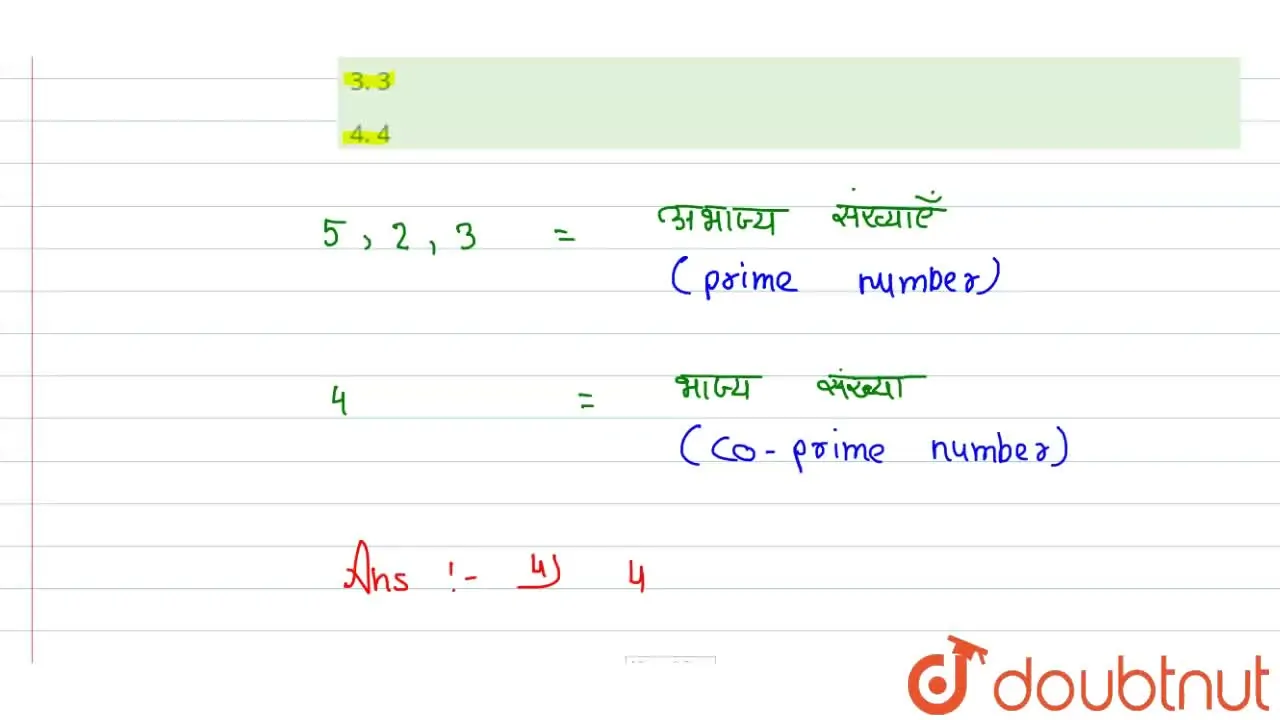 3. 3
4. 4
5 , 2 , 3 = अभाज्य संख्याएँ
(prime number)
4 = भाज्य संख्या
(co-prime number)
Ans :- 4) 4
doubtnut